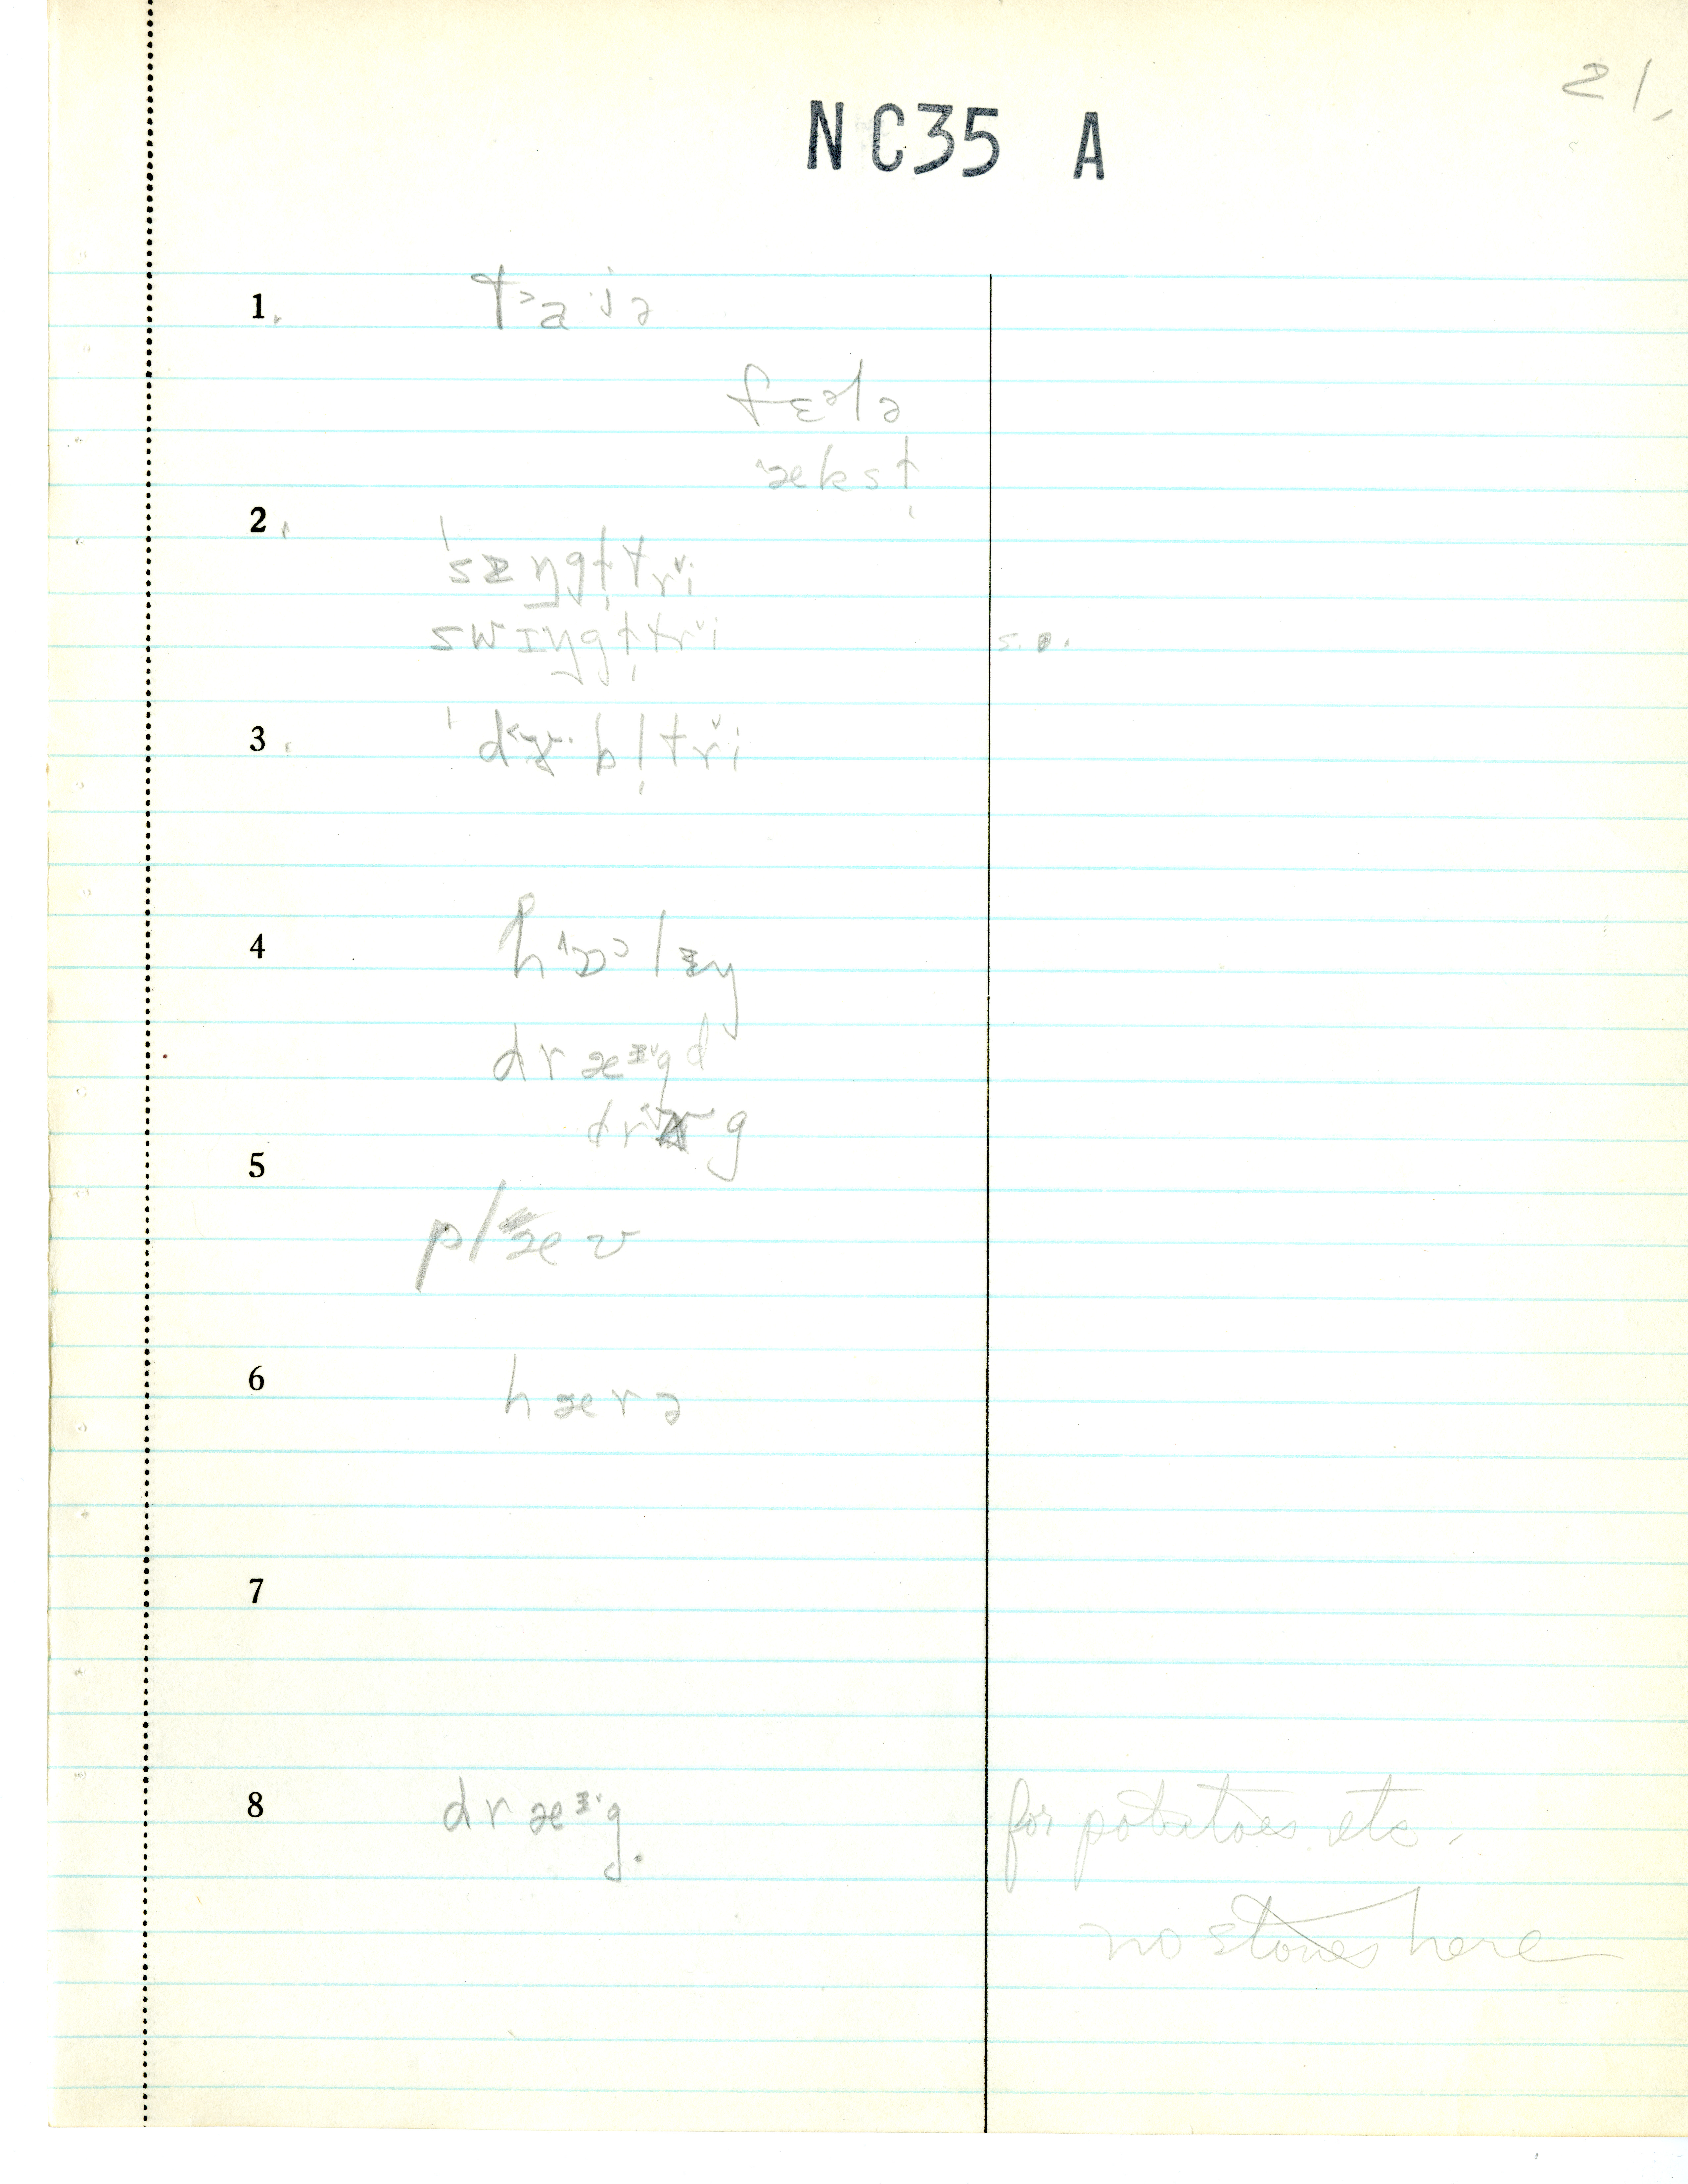 21.
NC35 A
1. t˃a·iə
fɛələ
˄ækst̩
2. ˈsɪŋgl̩tri
swɪŋgl̩tri s.o.
3. ˈdʌbl̩tri
4 h˄ɔɔlɪŋ
dræᶦgd
5
plæʊ
6 hærə
7
8 dræᶦg. for potatoes etc.
no stones here